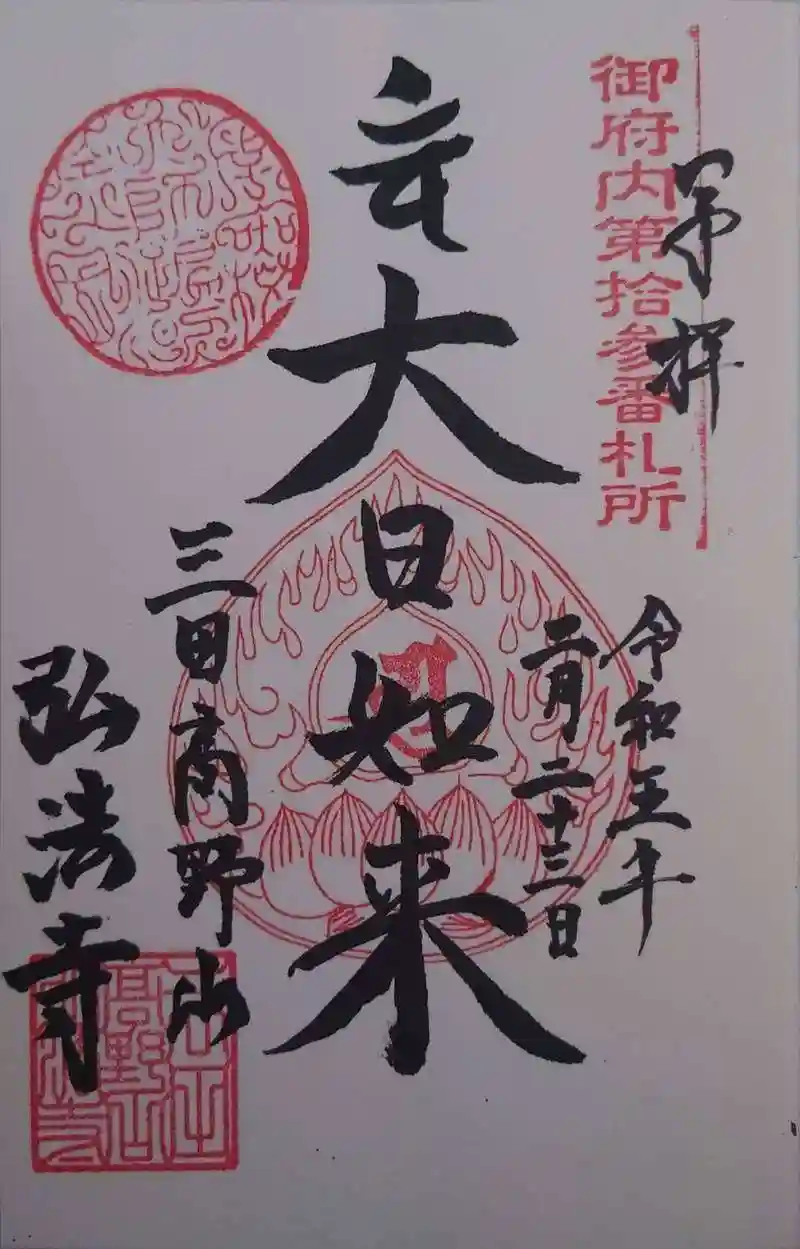 御府内第拾参番札所
奉拝
令和五年
二月二十三日
大日如来
三田高野山
弘法寺